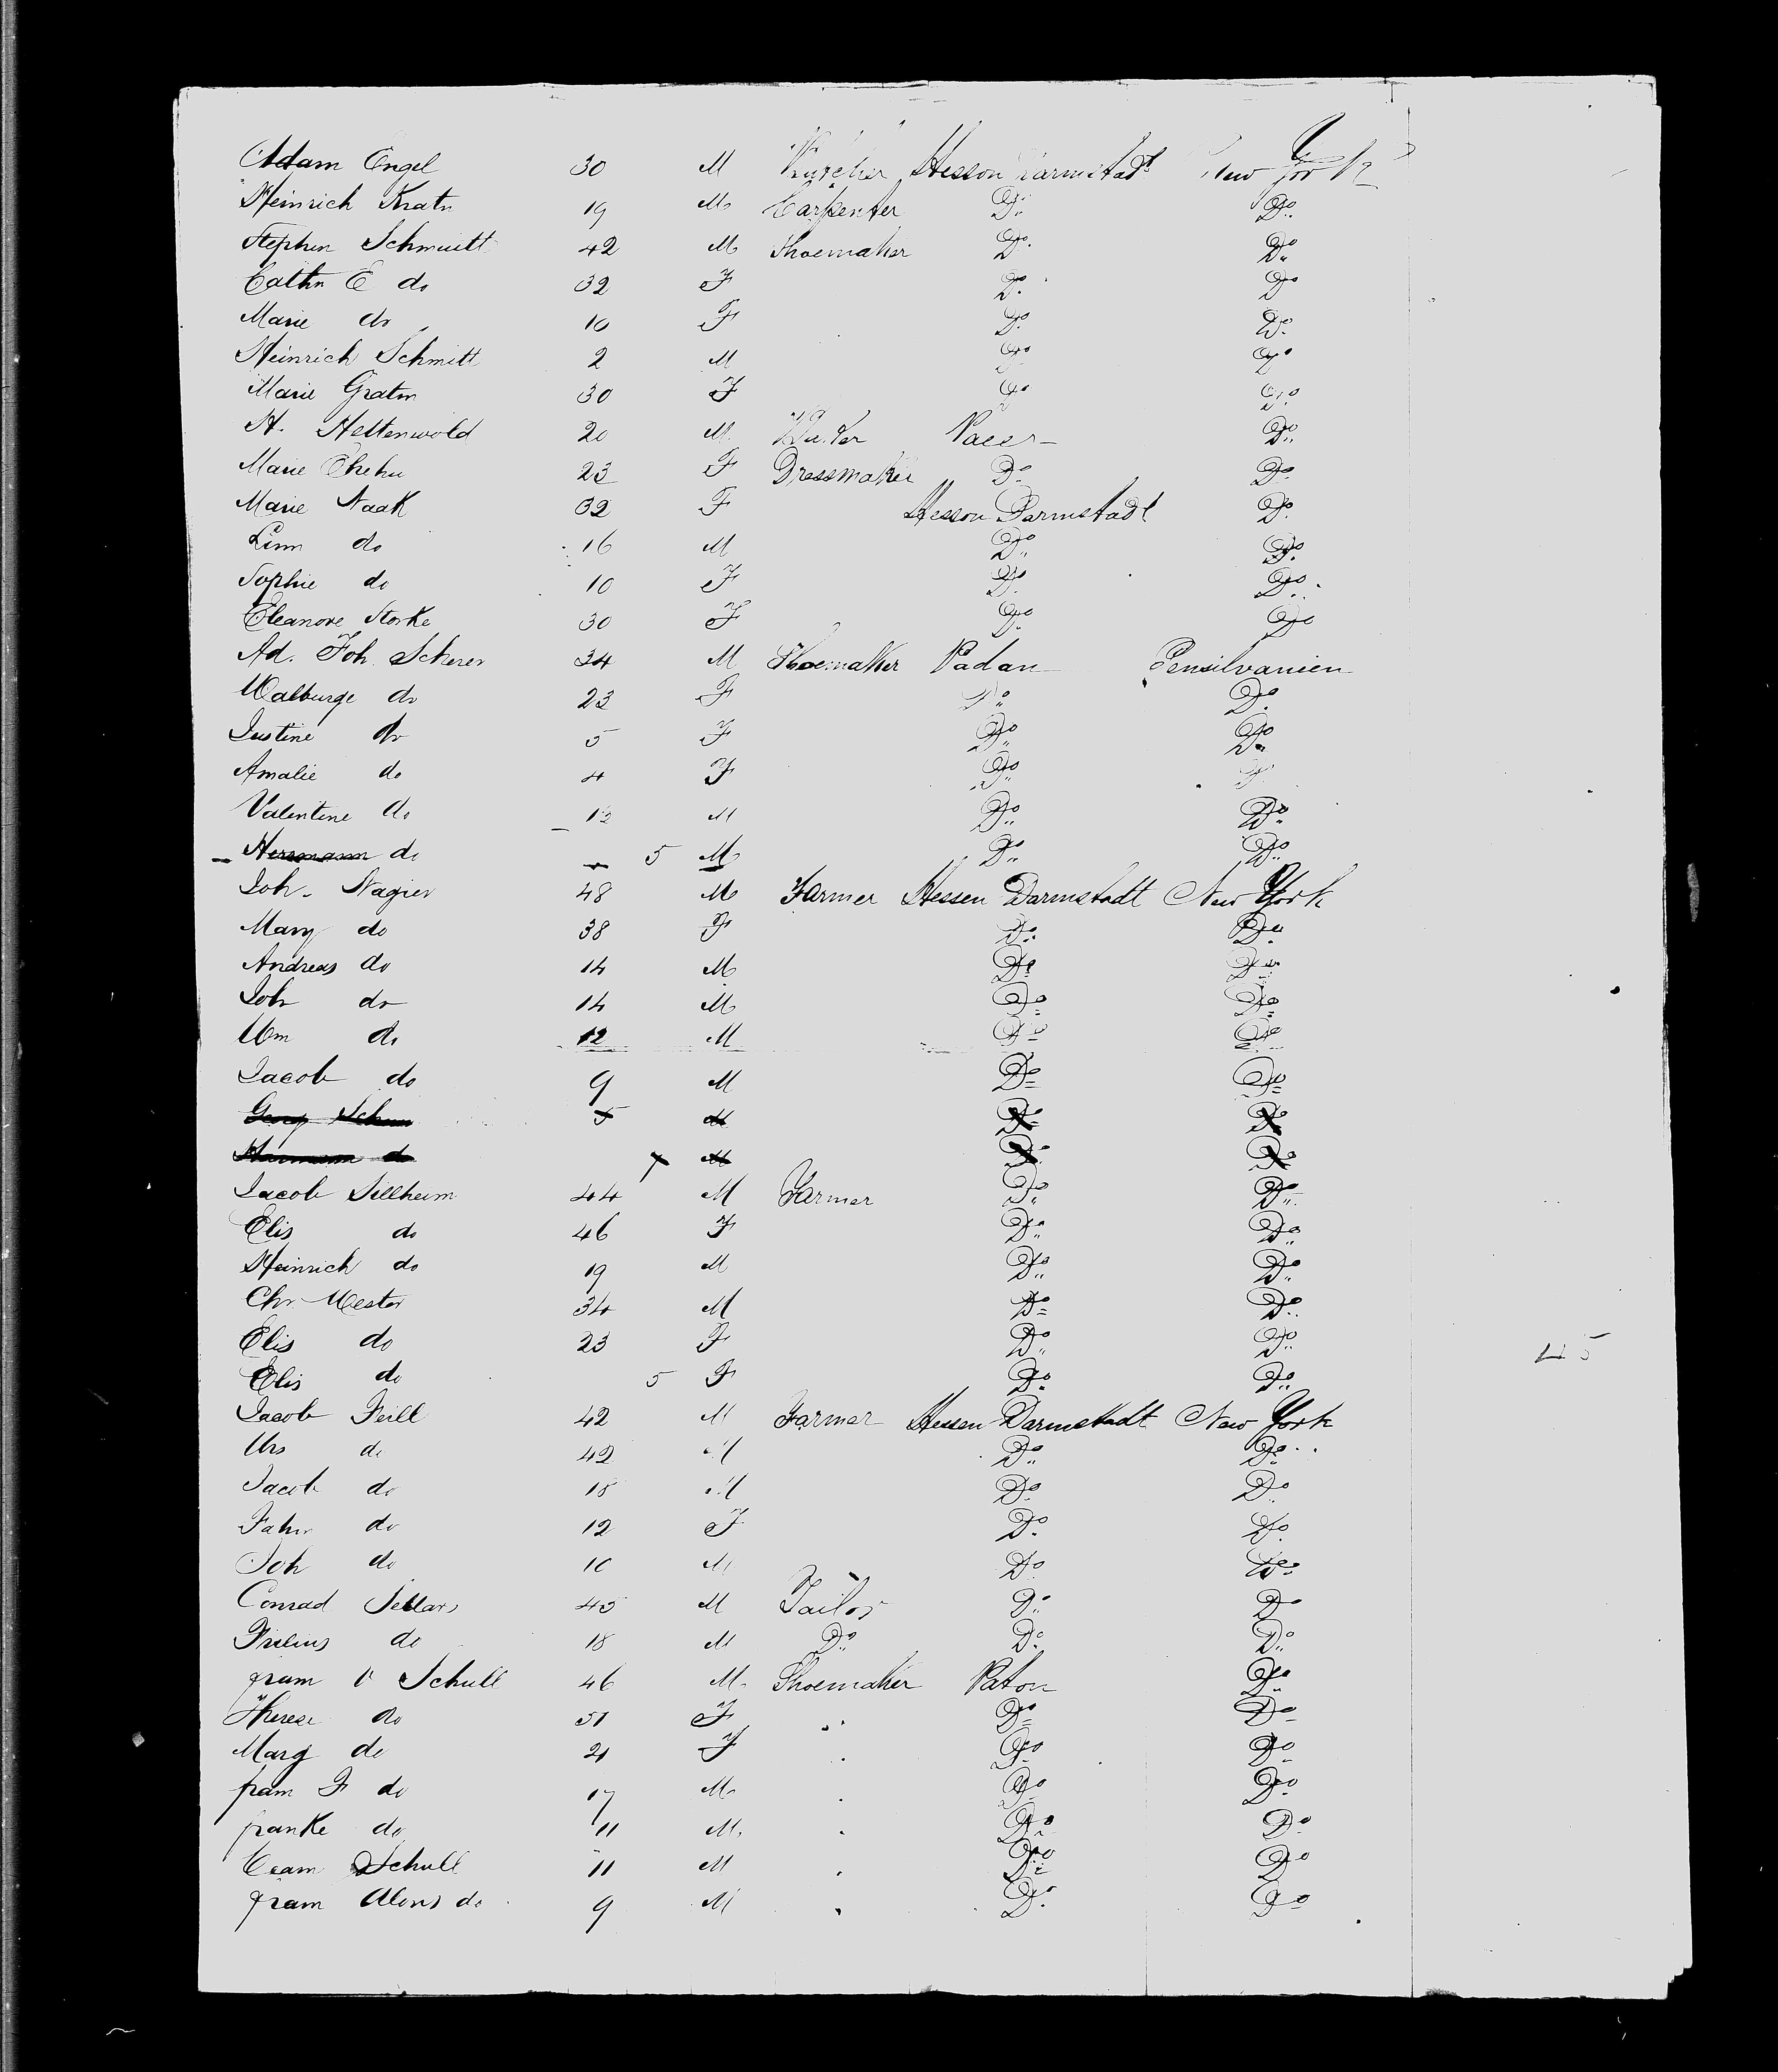 Adam Engel 30 M Hesson Darmstadt New York
Heinrich Kratn 19 M Carpenter Do Do
Stephen Schmitt 42 M Shoemaker Do Do
Cathn E do 32 F Do Do
Marie do 10 F Do Do
Heinrich Schmitt 2 M Do Do
Marie Gratm 30 F Do Do
H. Heltenwold 20 M Do
Marie 23 F Dressmaker Do Do
Marie Naak 32 F Hesson Darmstadt Do
Linn do 16 M Do Do
Sophie do 10 F Do Do
Eleanore Storke 30 F Do Do
Ad. Joh. Scherer 34 M Shoemaker Padan Pensilvanien
Walburge do 23 F Do Do
Justine do 5 F Do Do
Amalie do 4 F Do Do
Valentine do 12 M Do Do
Herrmann do 5 M Do Do
Joh. Nagier 48 M Farmer Hessen Darmstadt New York
Mary do 38 F Do Do
Andreas do 14 M Do Do
Joh do 14 M Do Do
Wm do 12 M Do Do
Jacob do 9 M Do Do
Georg 5 M Do Do
Harmann do M Do Do
Jacob Sillheim 44 M Farmer Do Do
Elis do 46 F Do Do
Heinrich do 19 M Do Do
Chr. Mester 34 M Do Do
Elis do 23 F Do Do 45
Elis do 5 F Do Do
Jacob Feill 42 M Farmer Hessen Darmstadt New York
Urs do 42 M Do Do
Jacob do 18 M Do Do
do 12 F Do Do
Joh do 10 M Do Do
Conrad Sellars 45 M Tailor Do Do
Julius do 18 M Do Do Do
fram V Schull 46 M Shoemaker Paton Do
Therese do 51 F Do Do
Marg do 21 F Do Do
fram F do 17 M Do Do
franke do 11 M Do Do
Cram Schull 11 M Do Do
fram Alons do 9 M Do Do